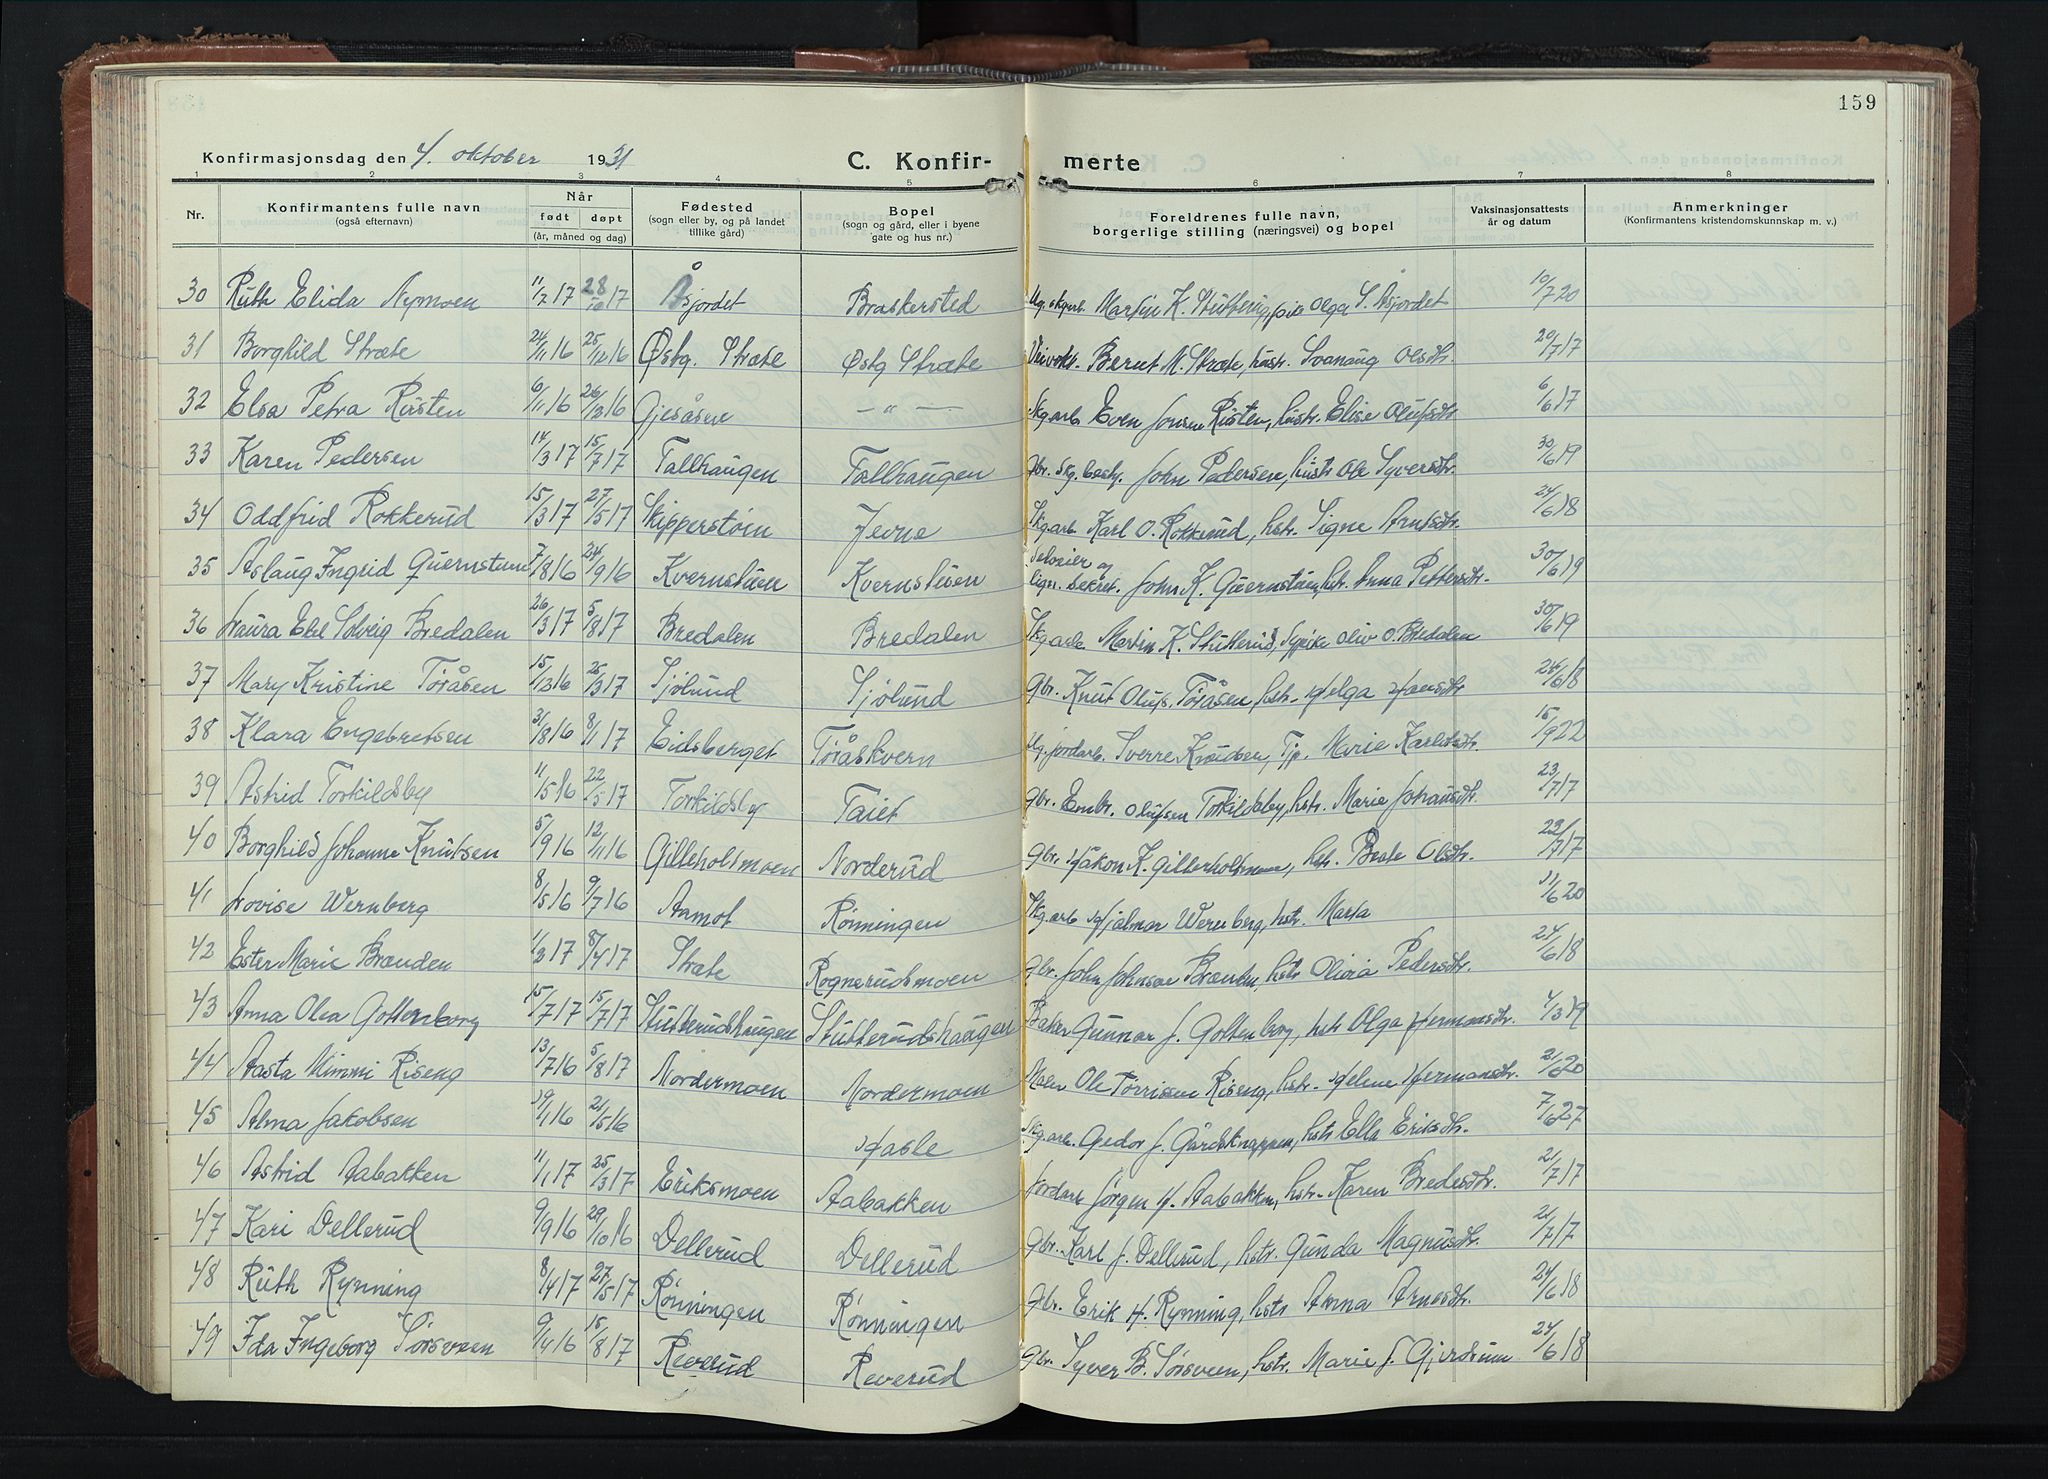 159
Konfirmasjonsdag den 4. oktober 1931
C. Konfir- merte
1 2 3 4 5 6 7 8
Nr. Konfirmantens fulle navn (også efternavn) Når født døpt (år, måned og dag) Fødested (sogn eller by, og på landet tillike gård) Bopel (sogn og gård, eller i byene gate og hus nr.) Foreldrenes fulle navn, borgerlige stilling (næringsvei) og bopel Vaksinasjonsattests år og datum Anmerkninger (Konfirmantens kristendomskunnskap m. v.)
30 Ruth Elida Nymoen 11/7 17 28/10 17 Åsjordet Braskersted Martin K. Olga S. Åsjordet 10/7 20
31 Borghild Stræte 24/11 16 25/12 16 Østg. Stræte Østg Stræte Bernt M. Stræte, hustr. Svanaug Olsdtr. 20/7 17
32 Elsa Petra Rusten 6/11 16 26/12 16 Gjesåsen — " — Skg.arb Even Jonsen Rusten, hustr. Elise Olufsdtr. 6/6 17
33 Karen Pedersen 14/3 17 15/7 17 Tallhaugen Tallhaugen Gbr. Skg.besty. John Pedersen, hustr Ole Syversdtr. 30/6 19
34 Oddfrid Rokkerud 15/3 17 27/5 17 Skipperstøm Jevne Skg.arb Karl O. Rokkerud, hstr. Signe Arnesdtr. 24/6 18
35 Aslaug Ingrid Quernstuen 7/8 16 24/9 16 Kvernstuen Kvernstuen og lign. sekret. John K. Quernstuen, hstr. Anna Pettersdtr. 30/6 19
36 Laura Solveig Bredalen 26/3 17 5/8 17 Bredalen Bredalen Skg.arb. Martin K. Stutterud, Oliv O. Bredalen 30/6 19
37 Mary Kristine Töråsen 15/12 16 25/3 17 Sjölund Sjölund Gbr. Knut Olufs. Töråsen, hstr. Helga Hansdtr 24/6 18
38 Klara Engebretsen 31/8 16 8/1 17 Eidsberget Töråskvern Ug. jordarb. Sverre Knudsen, Tjp. Marie Karlsdtr. 15/9 22
39 Astrid Torkildsby 11/5 16 22/5 17 Torkildsby Taiet Gbr. Embr. Olufsen Torkildsby, hstr. Marie Johansdtr. 23/7 17
40 Borghild Johanne Knutsen 5/9 16 12/11 16 Gilleholtmoen Norderud Gbr. Håkon K. Gillerholtmoen, hstr. Beate Olsdtr. 23/7 17
41 Lovise Wernberg 8/5 16 9/7 16 Aamot Rönningen Skg.arb Hjalmar Wernberg, hstr. Marta 11/6 20
42 Ester Marie Brænden 1/2 17 8/4 17 Stræte Rognerudsmoen Gbr. John Johnsen Brænden, hstr Olivia Pedersdtr. 24/6 18
43 Anna Olea Gottenborg 15/7 17 15/7 17 Stutterudshaugen Stutterudshaugen Baker Gunnar J. Gottenborg, hstr Olga Hermansdtr. 4/3 19
44 Aasta Mimmi Riseng 13/7 16 5/8 17 Nordermoen Nordermoen Maler Ole Torrissen Riseng, hstr. Helene Hermansdtr. 21/6 20
45 Alma Jakobsen 19/1 16 21/5 16 Hasle Skg.arb. Gedor J. Gårdsknappen, hstr Ella Eriksdtr. 7/6 27
46 Astrid Aabakken 11/1 17 25/3 17 Eriksmoen Aabakken Jordarb Jørgen H. Aabakken, hstr. Karen Bredesdtr. 21/7 17
47 Kari Dellerud 9/9 16 29/10 16 Dellerud Dellerud Gbr. Karl J. Dellerud, hstr. Gunda Magnusdtr. 21/7 17
48 Ruth Rynning 8/4 17 27/5 17 Rönningen Rönningen Gbr. Erik H. Rynning, hstr Anna Arnesdtr. 24/6 18
49 Ida Ingeborg Sörsveen 9/4 16 15/8 17 Reverud Reverud Gbr. Syver B. Sörsveen, hstr. Marie J. Gjerdrum 24/6 18